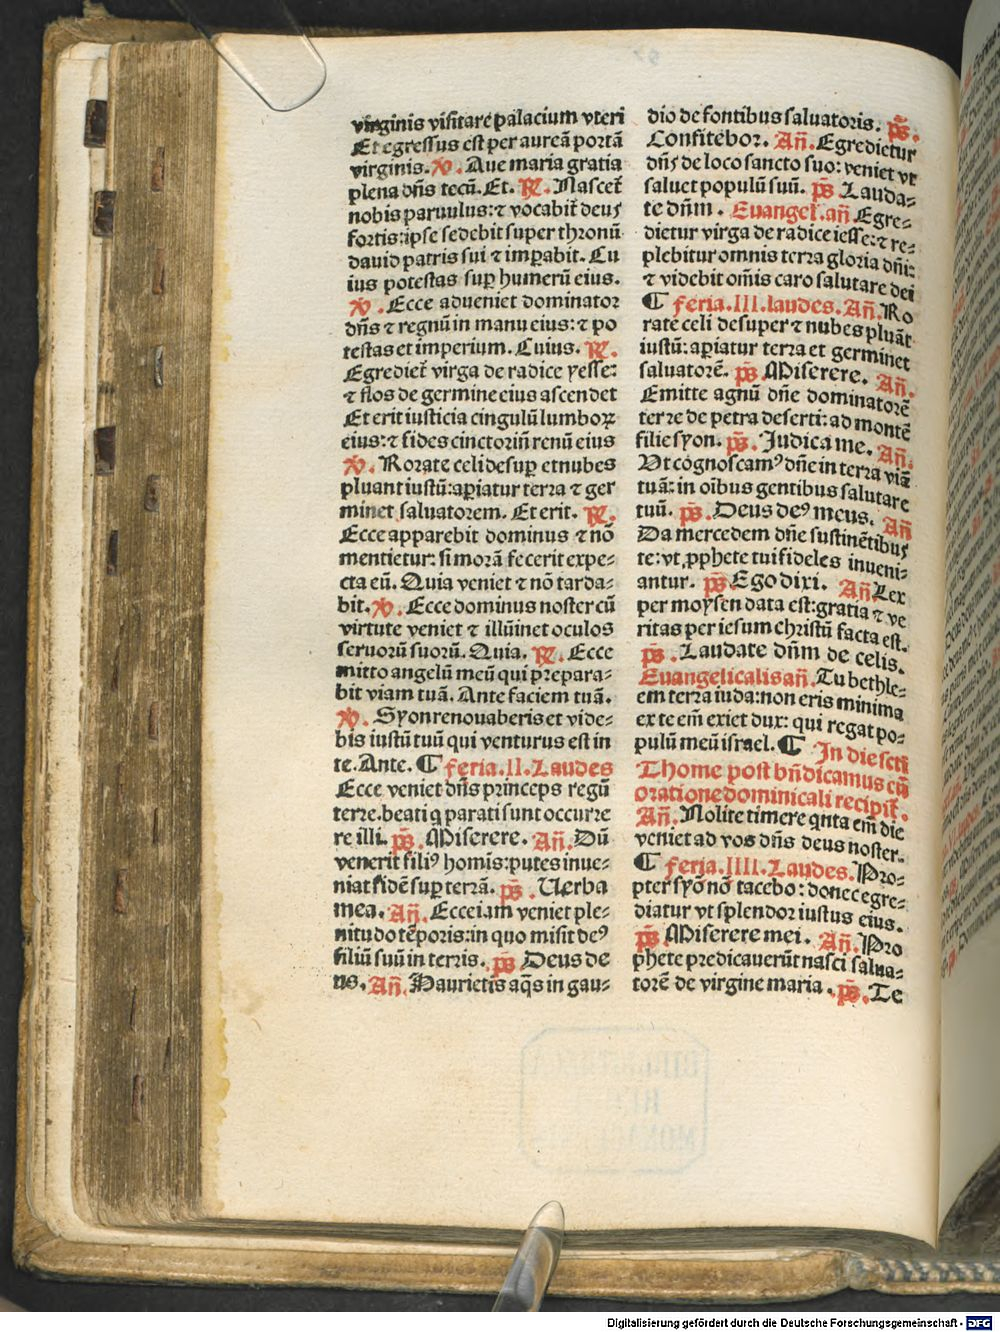 virginis visitare palacium vteri
Et egressus est per aureā portā
virginis. ℣. Aue maria gratia
plena dn̄s tecū. Et. ℟. Nascet᷑
nobis paruulus: ⁊ vocabit᷑ deus
fortis: ipse sedebit super thronū
dauid patris sui ⁊ imꝑabit. Cu
ius potestas suꝑ humerū eius.
℣. Ecce adueniet dominator
dn̄s ⁊ regnū in manu eius: ⁊ po
testas et imperium. Cuius. ℟.
Egrediet᷑ virga de radice yesse:
⁊ flos de germine eius ascendet
Et erit iusticia cingulū lumboꝝ
eius: ⁊ fides cinctoriū renū eius
℣. Rorate celi desuꝑ et nubes
pluant iustū: aꝑiatur terra ⁊ ger
minet saluatorem. Et erit. ℟.
Ecce apparebit dominus ⁊ nō
mentietur: si morā fecerit expe-
cta eū. Quia veniet ⁊ nō tarda-
bit. ℣. Ecce dominus noster cū
virtute veniet ⁊ illūinet oculos
seruorū suorū. Quia. ℟. Ecce
mitto angelū meū qui prepara-
bit viam tuā. Ante faciem tuā.
℣. Syon renouaberis et vide-
bis iustū tuū qui venturus est in
te. Ante. ¶ feria. II. Laudes
Ecce veniet dn̄s princeps regū
terre. beati q parati sunt occurre
re illi. ps̄. Miserere. Añ. Dū
venerit filiꝰ homis: putes inue-
niat fidē suꝑ terrā. ps̄. Uerba
mea. Añ. Ecce iam veniet ple-
nitudo tēporis: in quo misit deꝰ
filiū suū in terris. ps̄ Deus de
us. Añ. Haurietis aq̄s in gau-
dio de fontibus saluatoris. ps̄.
Confitebor. Añ. Egredietur
dn̄s de loco sancto suo: veniet vt
saluet populū suū. ps̄ Lauda-
te dn̄m. Euangel᷑. añ Egre-
dietur virga de radice iesse: ⁊ re-
plebitur omnis terra gloria dn̄i:
⁊ videbit om̄is caro salutare dei
¶ feria. III. laudes. Añ. Ro
rate celi desuper ⁊ nubes pluāt
iustū: aꝑiatur terra et germinet
saluatorē. ps̄ Miserere. Añ.
Emitte agnū dn̄e dominatorē
terre de petra deserti: ad montē
filie syon. ps̄. Iudica me. Añ.
Ut cognoscamꝰ dn̄e in terra viā
tuā: in oībus gentibus salutare
tuū. ps̄. Deus deꝰ meus. Añ
Da mercedem dn̄e sustinētibus
te: vt ꝓphete tui fideles inueni-
antur. ps̄ Ego dixi. Añ Lex
per moysen data est: gratia ⁊ ve
ritas per iesum christū facta est.
ps̄. Laudate dn̄m de celis.
Euangelicalis añ. Tu bethle-
em terra iuda: non eris minima
ex te em̄ exiet dux: qui regat po-
pulū meū israel. ¶ In die sctī
Thome post bn̄dicamus cū
oratione dominicali recipit᷑.
Añ. Nolite timere qnta em̄ die
veniet ad vos dn̄s deus noster.
¶ feria. IIII. Laudes. Pro-
pter syō nō tacebo: donec egre-
diatur vt splendor iustus eius.
ps̄ Miserere mei. Añ. Pro
phete predicauerūt nasci salua-
torē de virgine maria. ps̄. Te
Digitalisierung gefördert durch die Deutsche Forschungsgemeinschaft - DFG